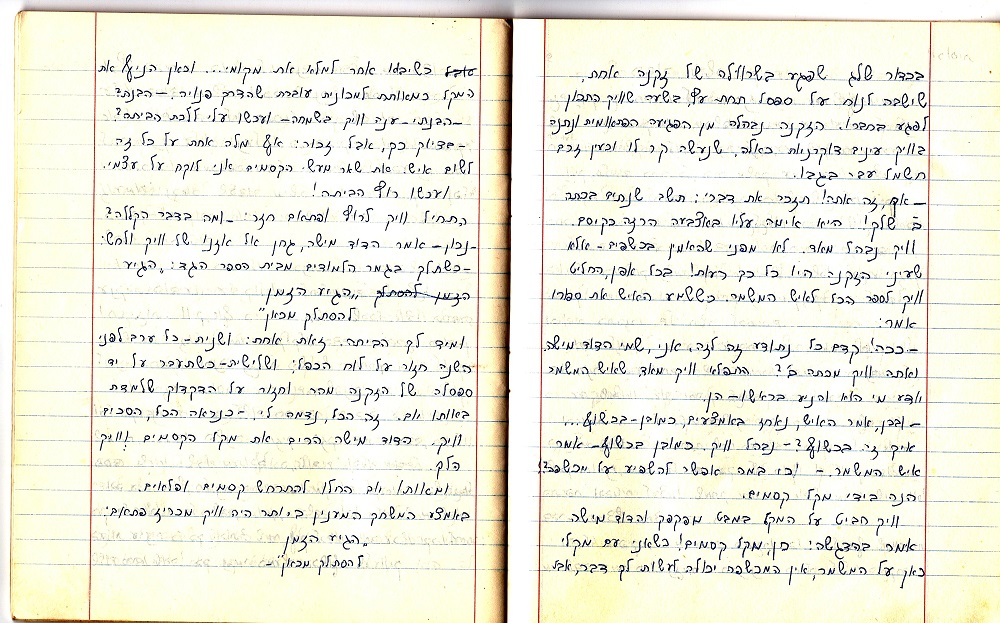 בכדור שלג שפגע בשרוולה של זקנה אחת,
שישבה לנוח על ספסל תחת עץ, בשעה שוויק התכוון
לפגע בחברו. הזקנה נבהלה מן הפגיעה הפתאומית ונתנה
בוויק עינים דוקרניות כאלה, שנעשה קר לו וכעין זרם
חשמל עבר בגבו.
–אה, זה אתה! תזכר את דברי: תשב שנתים בכתה
ב' שלך! היא איימה עליו באצבעה הרזה כקיסם.
וויק נבהל מאד. לא מפני שהאמין בכשפים–אלא
שעיני הזקנה היו כל כך רעות! בכל אפן, החליט
וויק לספר הכל לאיש המשמר. כששמע האיש את ספורו
אמר:
–ככה! קדם כל נתודע זה לזה. אני, שמי הדוד מישה,
ואתה וויק מכתה ב'? התפלא וויק מאד שאיש המשמר
יודע מי הוא והניע בראשו–הן.
–ובכן, אמר האיש, נאחז באמצעים, כמובן–בכשוף...
איך זה בכשוף?–נבהל וויק. כמובן בכשוף–אמר
איש המשמר.– וכי במה אפשר להשפיע על מכשפה?!
הנה בידי מקל קסמים.
וויק הביט על המקל במבט מפקפק והדוד מישה
אמר בהדגשה: כן, מקל קסמים! כשאני עם מקלי
כאן על המשמר, אין המכשפה יכולה לעשות לך דבר, אבל
כשיבוא אחר למלא את מקומי... וכאן הניע את
המקל כמאותת למכונית עוברת שהדרך פנויה.–הבנת?
–הבנתי–ענה וויק בשמחה–ועכשו עלי ללכת הביתה?
–בדיוק כך, אבל זכור: אף מלה אחת על כל זה
לשום איש. את שאר מעשי הקסמים אני לוקח על עצמי.
ועכשו רוץ הביתה!
התחיל וויק לרוץ ופתאם חזר: –ומה בדבר הקללה?
–נכון–אמר הדוד מישה, גחן אל אזנו של וויק ולחש:
–כשתלך בגמר הלמודים מבית הספר הגד: „הגיע
הזמן להסתלק „הגיע הזמן
להסתלק מכאן"
ומיד לך הביתה. זאת אחת: ושנית–כל ערב לפני
השנה חזור על לוח הכפל: ושלישית–כשתעבר על יד
ספסלה של הזקנה מהר וחזור על הדקדוק שלמדת
באותו יום. זה הכל, נדמה לי.–כנראה הכל, הסכים
וויק. הדוד מישה הרים את מקל הקסמים וויק
הלך.
ומאותו יום החלו להתרחש קסמים ופלאים.
באמצע המשחק המענין ביותר היה וויק מכריז פתאם:
„הגיע הזמן
להסתלק מכאן"–